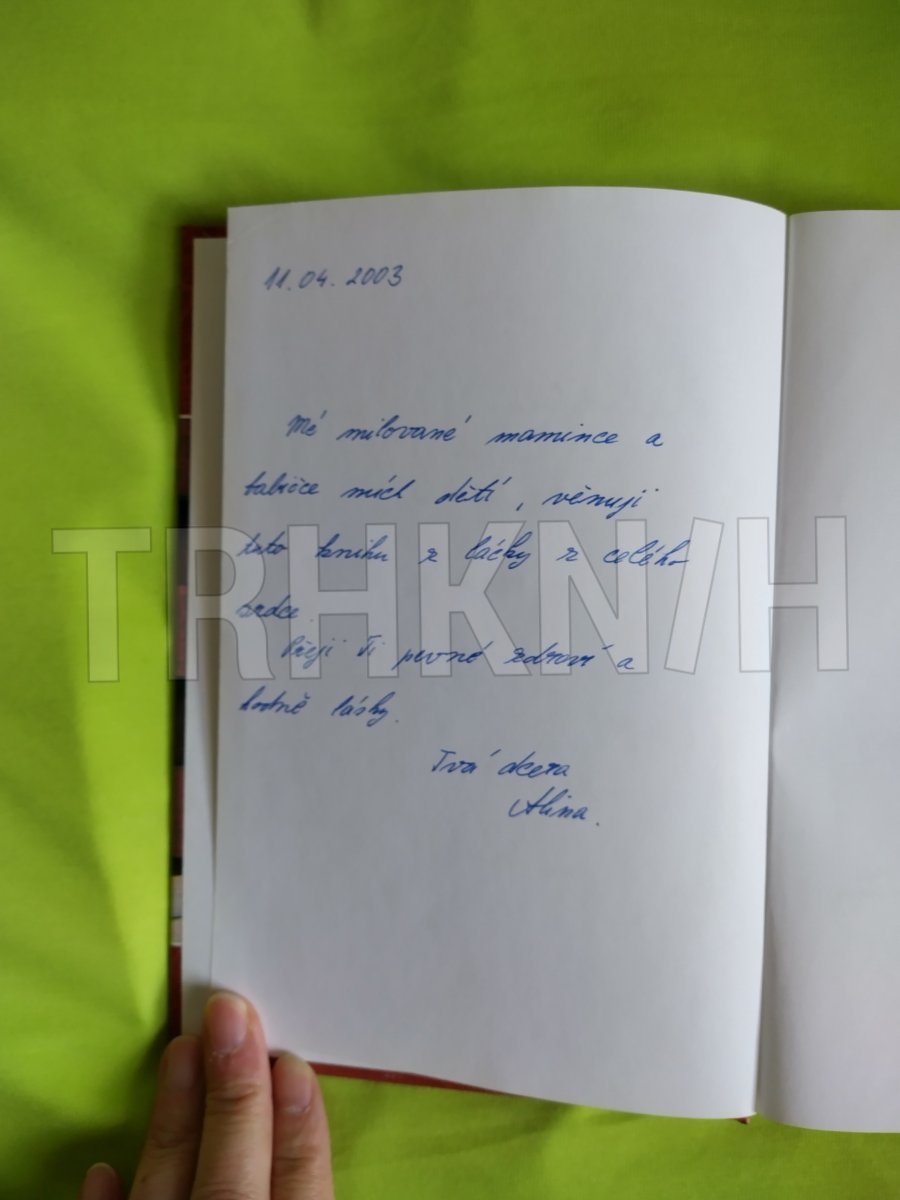 11.04.2003
Mé milované mamince a
babičce mích dětí, věnuji
tuto knihu z láčky z celého
srdce.
Přeji Ti pevné zdraví a
hodně lásky.
Tvá dcera
Alina.
TRHKNIH